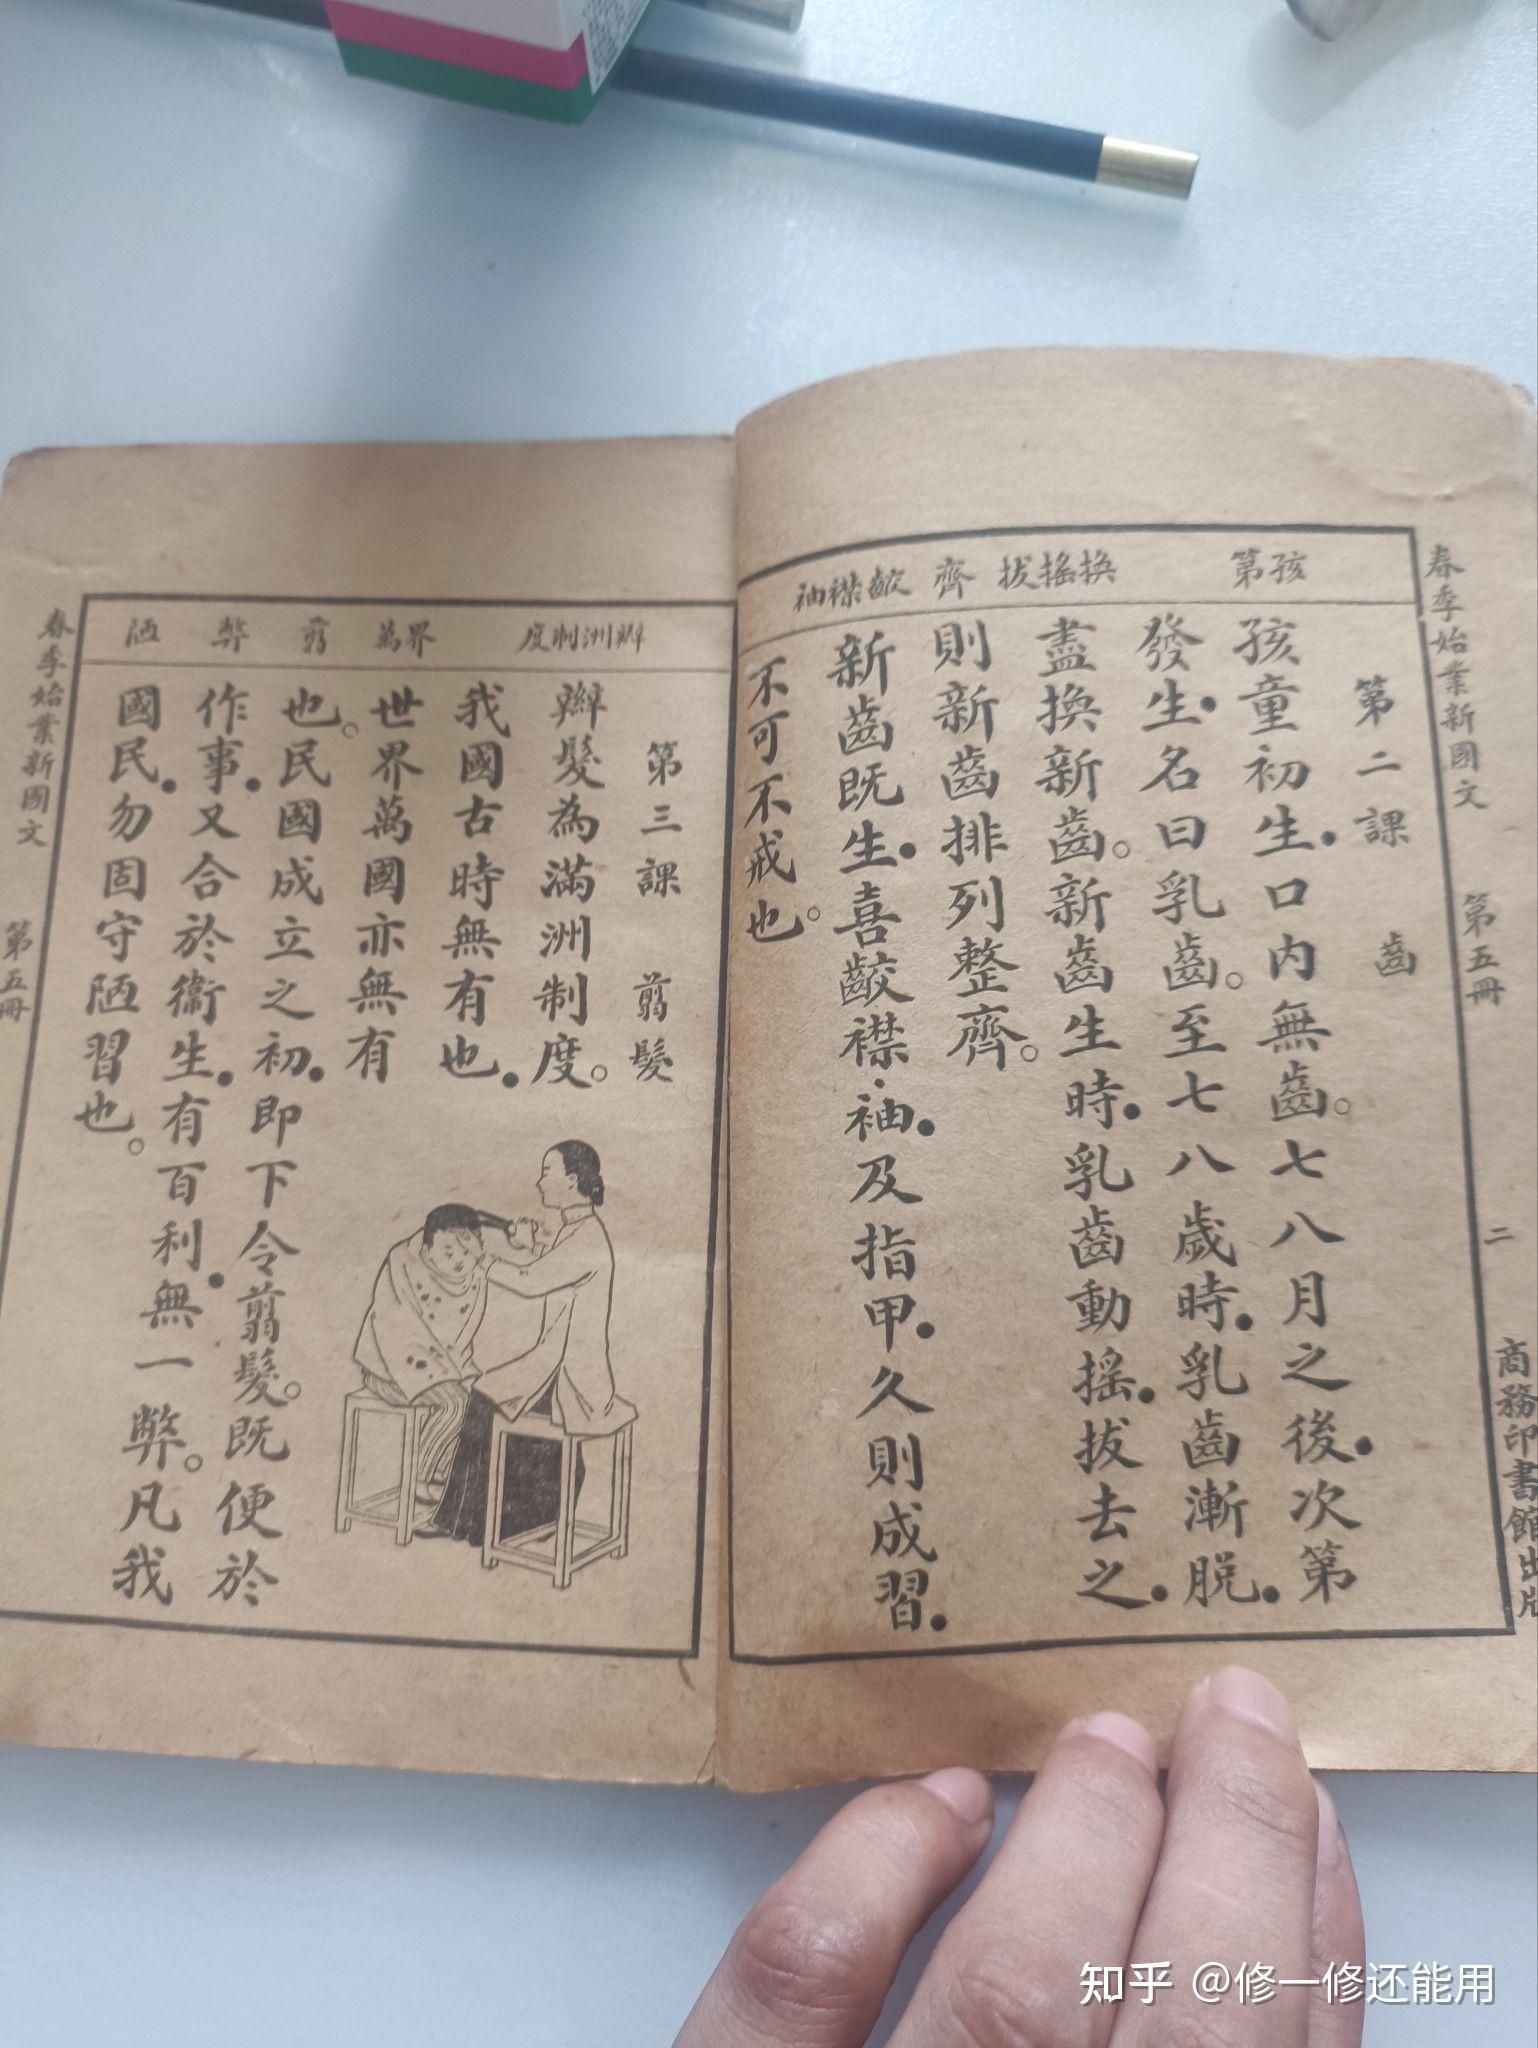 春季始業新國文 第五冊 二 商務印書館出版
孩第 換搖拔 齊 齩襟袖
第二課 齒
孩童初生．口內無齒。七八月之後．次第
發生．名曰乳齒。至七八歲時．乳齒漸脫．
盡換新齒。新齒生時．乳齒動搖．拔去之．
則新齒排列整齊。
新齒既生．喜齩襟．袖．及指甲．久則成習．
不可不戒也。
辮洲制度 界萬 翦 弊 陋
第三課 翦髮
辮髮為滿洲制度。
我國古時無有也．
世界萬國亦無有
也。民國成立之初．即下令翦髮。既便於
作事．又合於衞生．有百利．無一弊。凡我
國民．勿固守陋習也。
春季始業新國文 第五冊
知乎 @修一修还能用